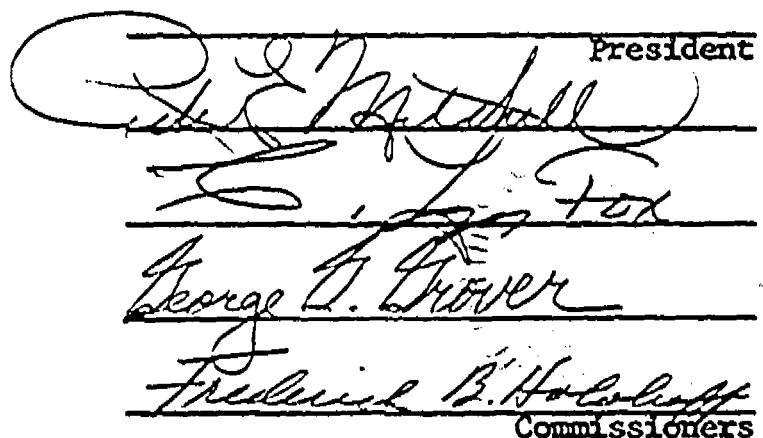 President
Peter E. Mitchell
E. Lyn Fox
George G. Grover
Frederick B. Holoboff
Commissioners